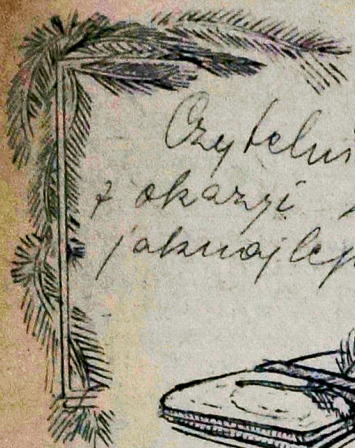 Czytelni
z okazyi
jaknajlep